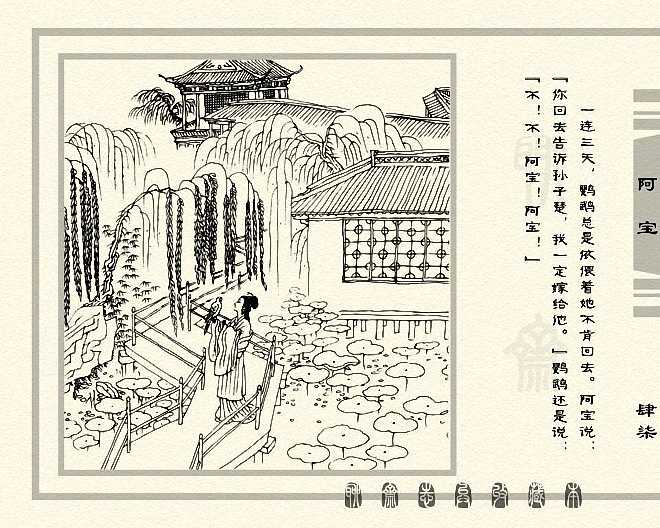 一连三天，鹦鹉总是依偎着她不肯回去。阿宝说：
「你回去告诉孙子楚，我一定嫁给他。」鹦鹉还是说：
「不！不！阿宝！阿宝！」
阿宝
肆柒